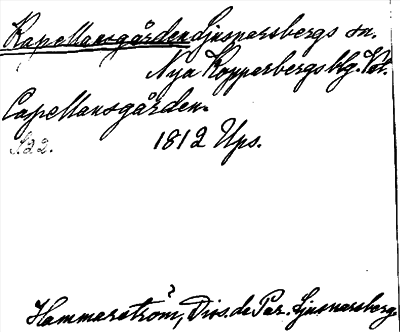 Kapellansgården Ljusnarsbergs sn.
Nya Kopparbergs blg. Vstm.
Capellansgården.
S. 22. 1812 Ups.
?
Hammarström, Diss. de Par. Ljusnarsberg.